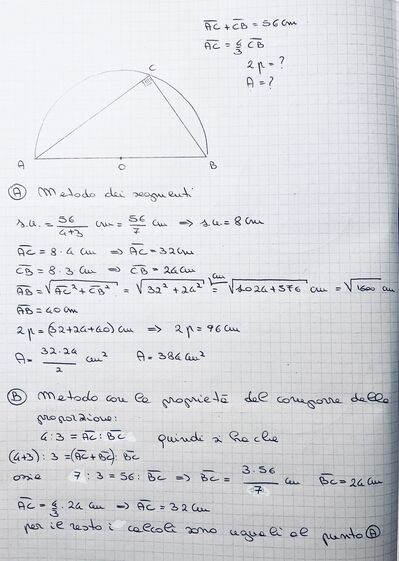 AC + CB = 56 cm
AC = 4/3 CB
2p = ?
A = ?
C
A
O
B
Ⓐ Metodo dei segmenti
s.u. = 56/(4+3) cm = 56/7 ⇒ s.u. = 8 cm
AC = 8 · 4 cm ⇒ AC = 32 cm
CB = 8 · 3 cm ⇒ CB = 24 cm
AB = √(AC² + CB²) = √(32² + 24²) cm = √(1024 + 576) cm = √1600 cm
AB = 40 cm
2p = (32+24+40) cm ⇒ 2p = 96 cm
A = 32·24/2 cm² A = 384 cm²
Ⓑ Metodo con la proprietà del comporre delle
proporzione:
4 : 3 = AC : BC quindi si ha che
(4+3) : 3 = (AC + BC) : BC
ossia 7 : 3 = 56 : BC ⇒ BC = 3·56/7 cm BC = 24 cm
AC = 4/3 · 24 cm ⇒ AC = 32 cm
per il resto i calcoli sono uguali al punto Ⓐ